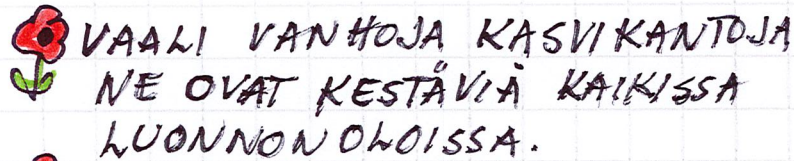 VAALI VANHOJA KASVIKANTOJA
NE OVAT KESTÄVIÄ KAIKISSA
LUONNONOLOISSA.